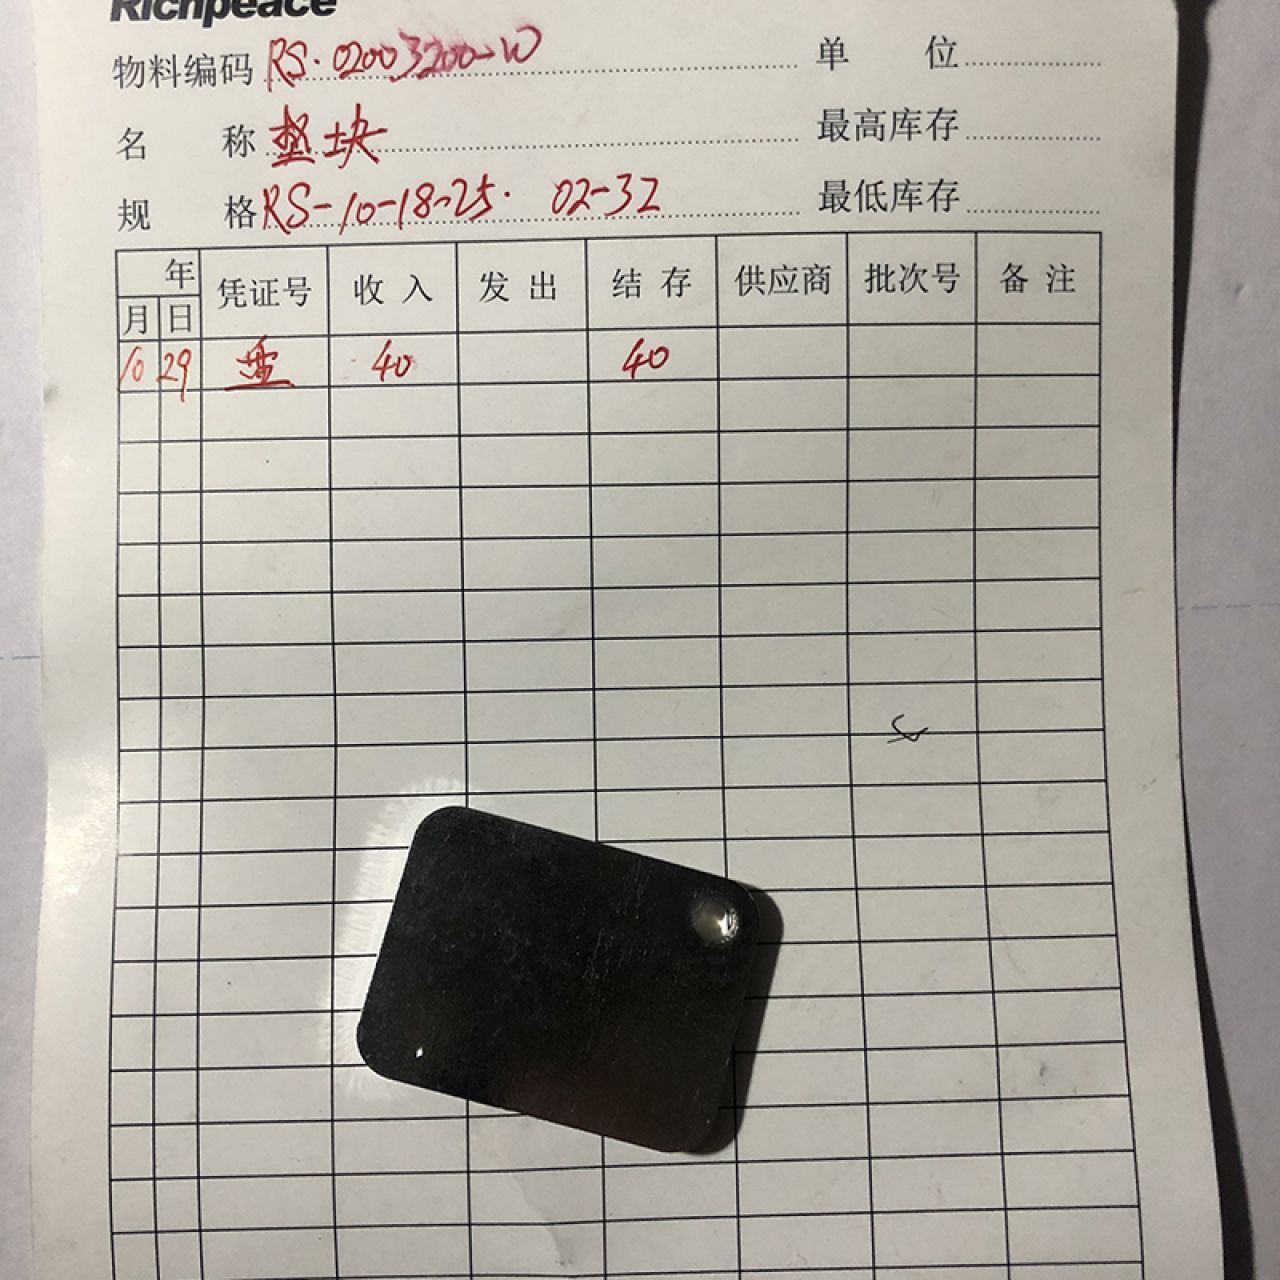 Richpeace
物料编码 RS.02003200-W 单 位
名 称 垫块 最高库存
规 格 RS-10-18-25. 02-32 最低库存
年
月 日 凭证号 收 入 发 出 结 存 供应商 批次号 备 注
10 29 盘 40 40